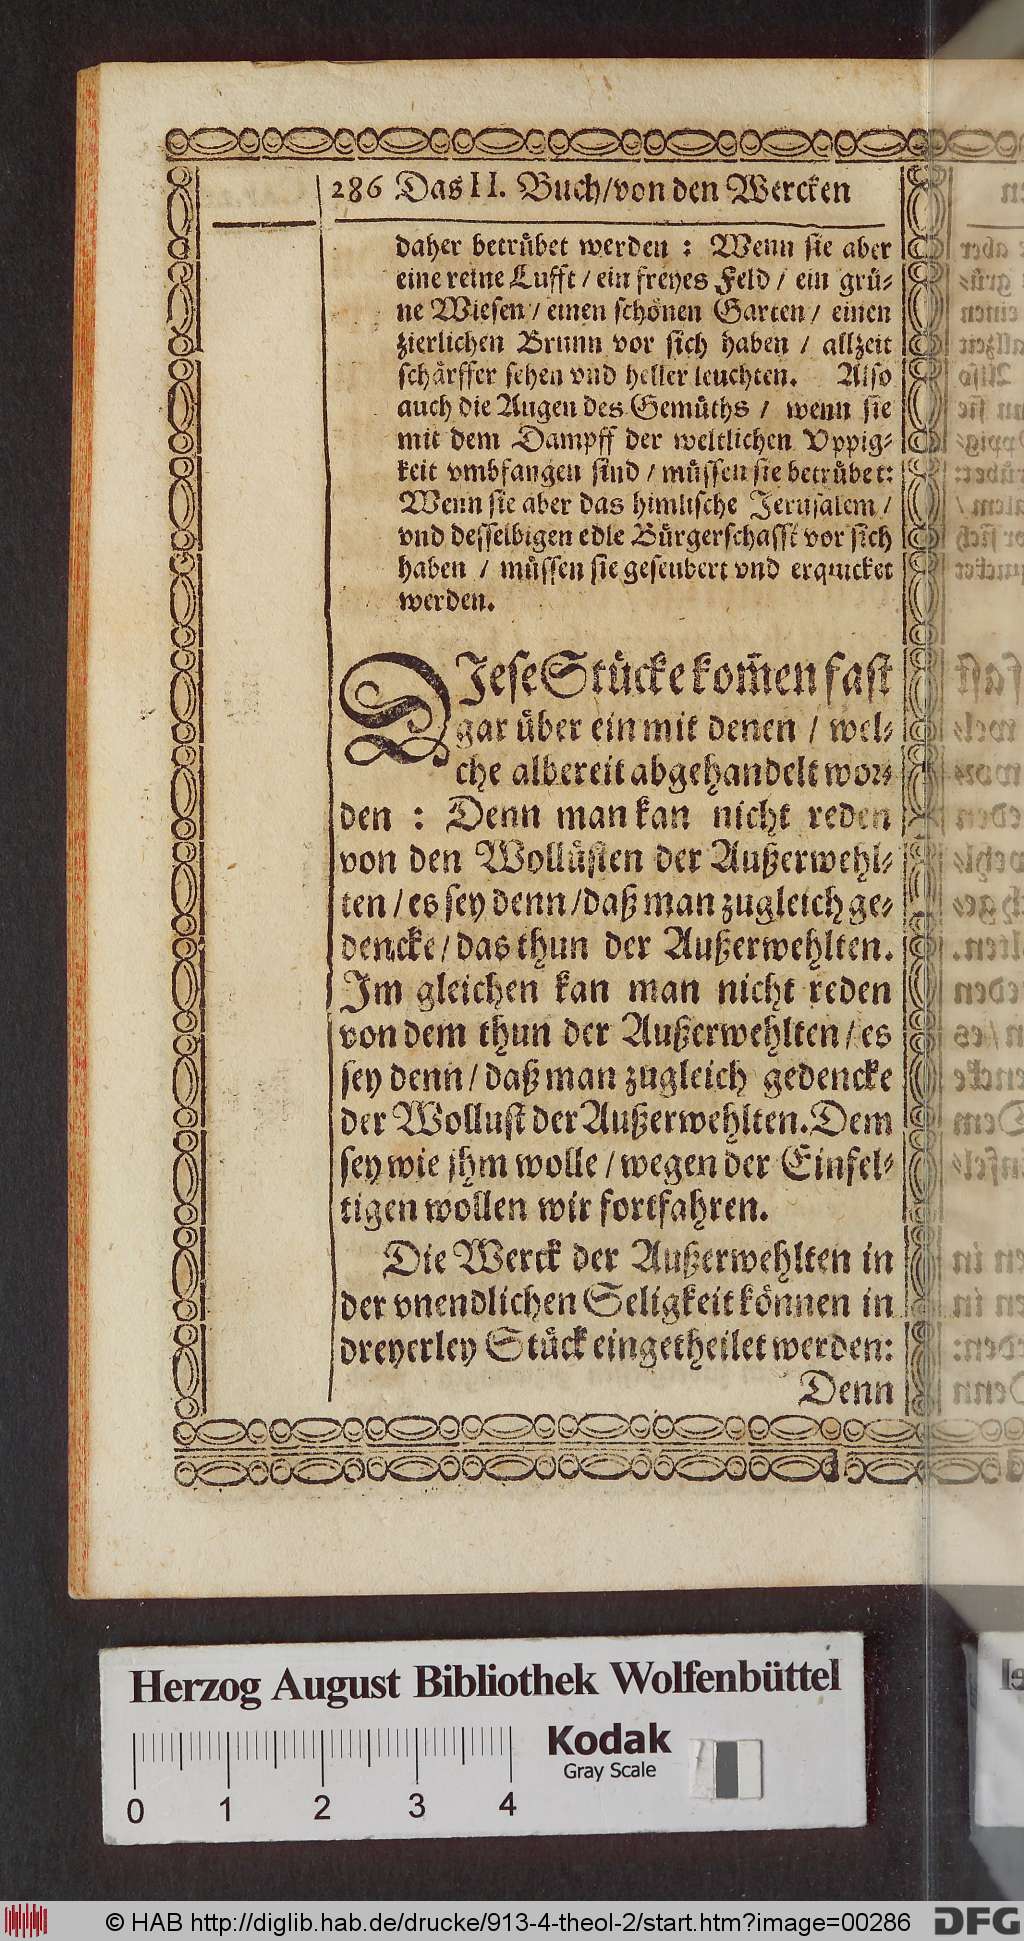 286 Das II. Buch/von den Wercken
daher betrübet werden : Wenn sie aber
eine reine Lufft / ein freyes Feld / ein grü-
ne Wiesen / einen schönen Garten / einen
zierlichen Brunn vor sich haben / allzeit
schärffer sehen vnd heller leuchten. Also
auch die Augen des Gemüths / wenn sie
mit dem Dampff der weltlichen Vppig-
keit vmbfangen sind / müssen sie betrübet:
Wenn sie aber das himlische Jerusalem /
vnd desselbigen edle Bürgerschafft vor sich
haben / müssen sie geseubert vnd erquicket
werden.
DIese Stücke kom̃en fast
gar über ein mit denen / wel-
che albereit abgehandelt wor-
den : Denn man kan nicht reden
von den Wollüsten der Außerwehl-
ten / es sey denn / daß man zugleich ge-
dencke / das thun der Außerwehlten.
Im gleichen kan man nicht reden
von dem thun der Außerwehlten / es
sey denn / daß man zugleich gedencke
der Wollust der Außerwehlten. Dem
sey wie jhm wolle / wegen der Einfel-
tigen wollen wir fortfahren.
Die Werck der Außerwehlten in
der vnendlichen Seligkeit können in
dreyerley Stück eingetheilet werden:
Denn
Herzog August Bibliothek Wolfenbüttel
Kodak
Gray Scale
0 1 2 3 4
© HAB http://diglib.hab.de/drucke/913-4-theol-2/start.htm?image=00286
DFG